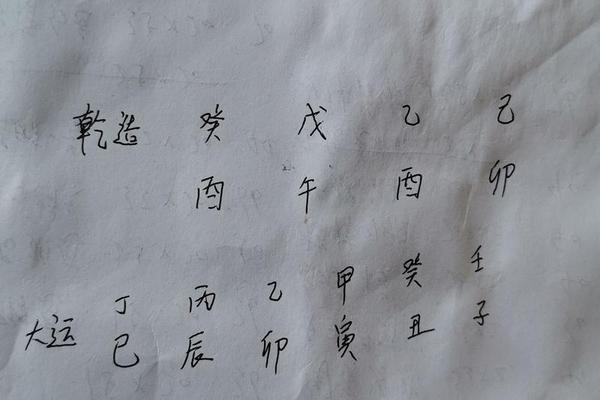 乾造 癸 戊 乙 己
酉 午 酉 卯
大运 丁 丙 乙 甲 癸 壬
巳 辰 卯 寅 丑 子